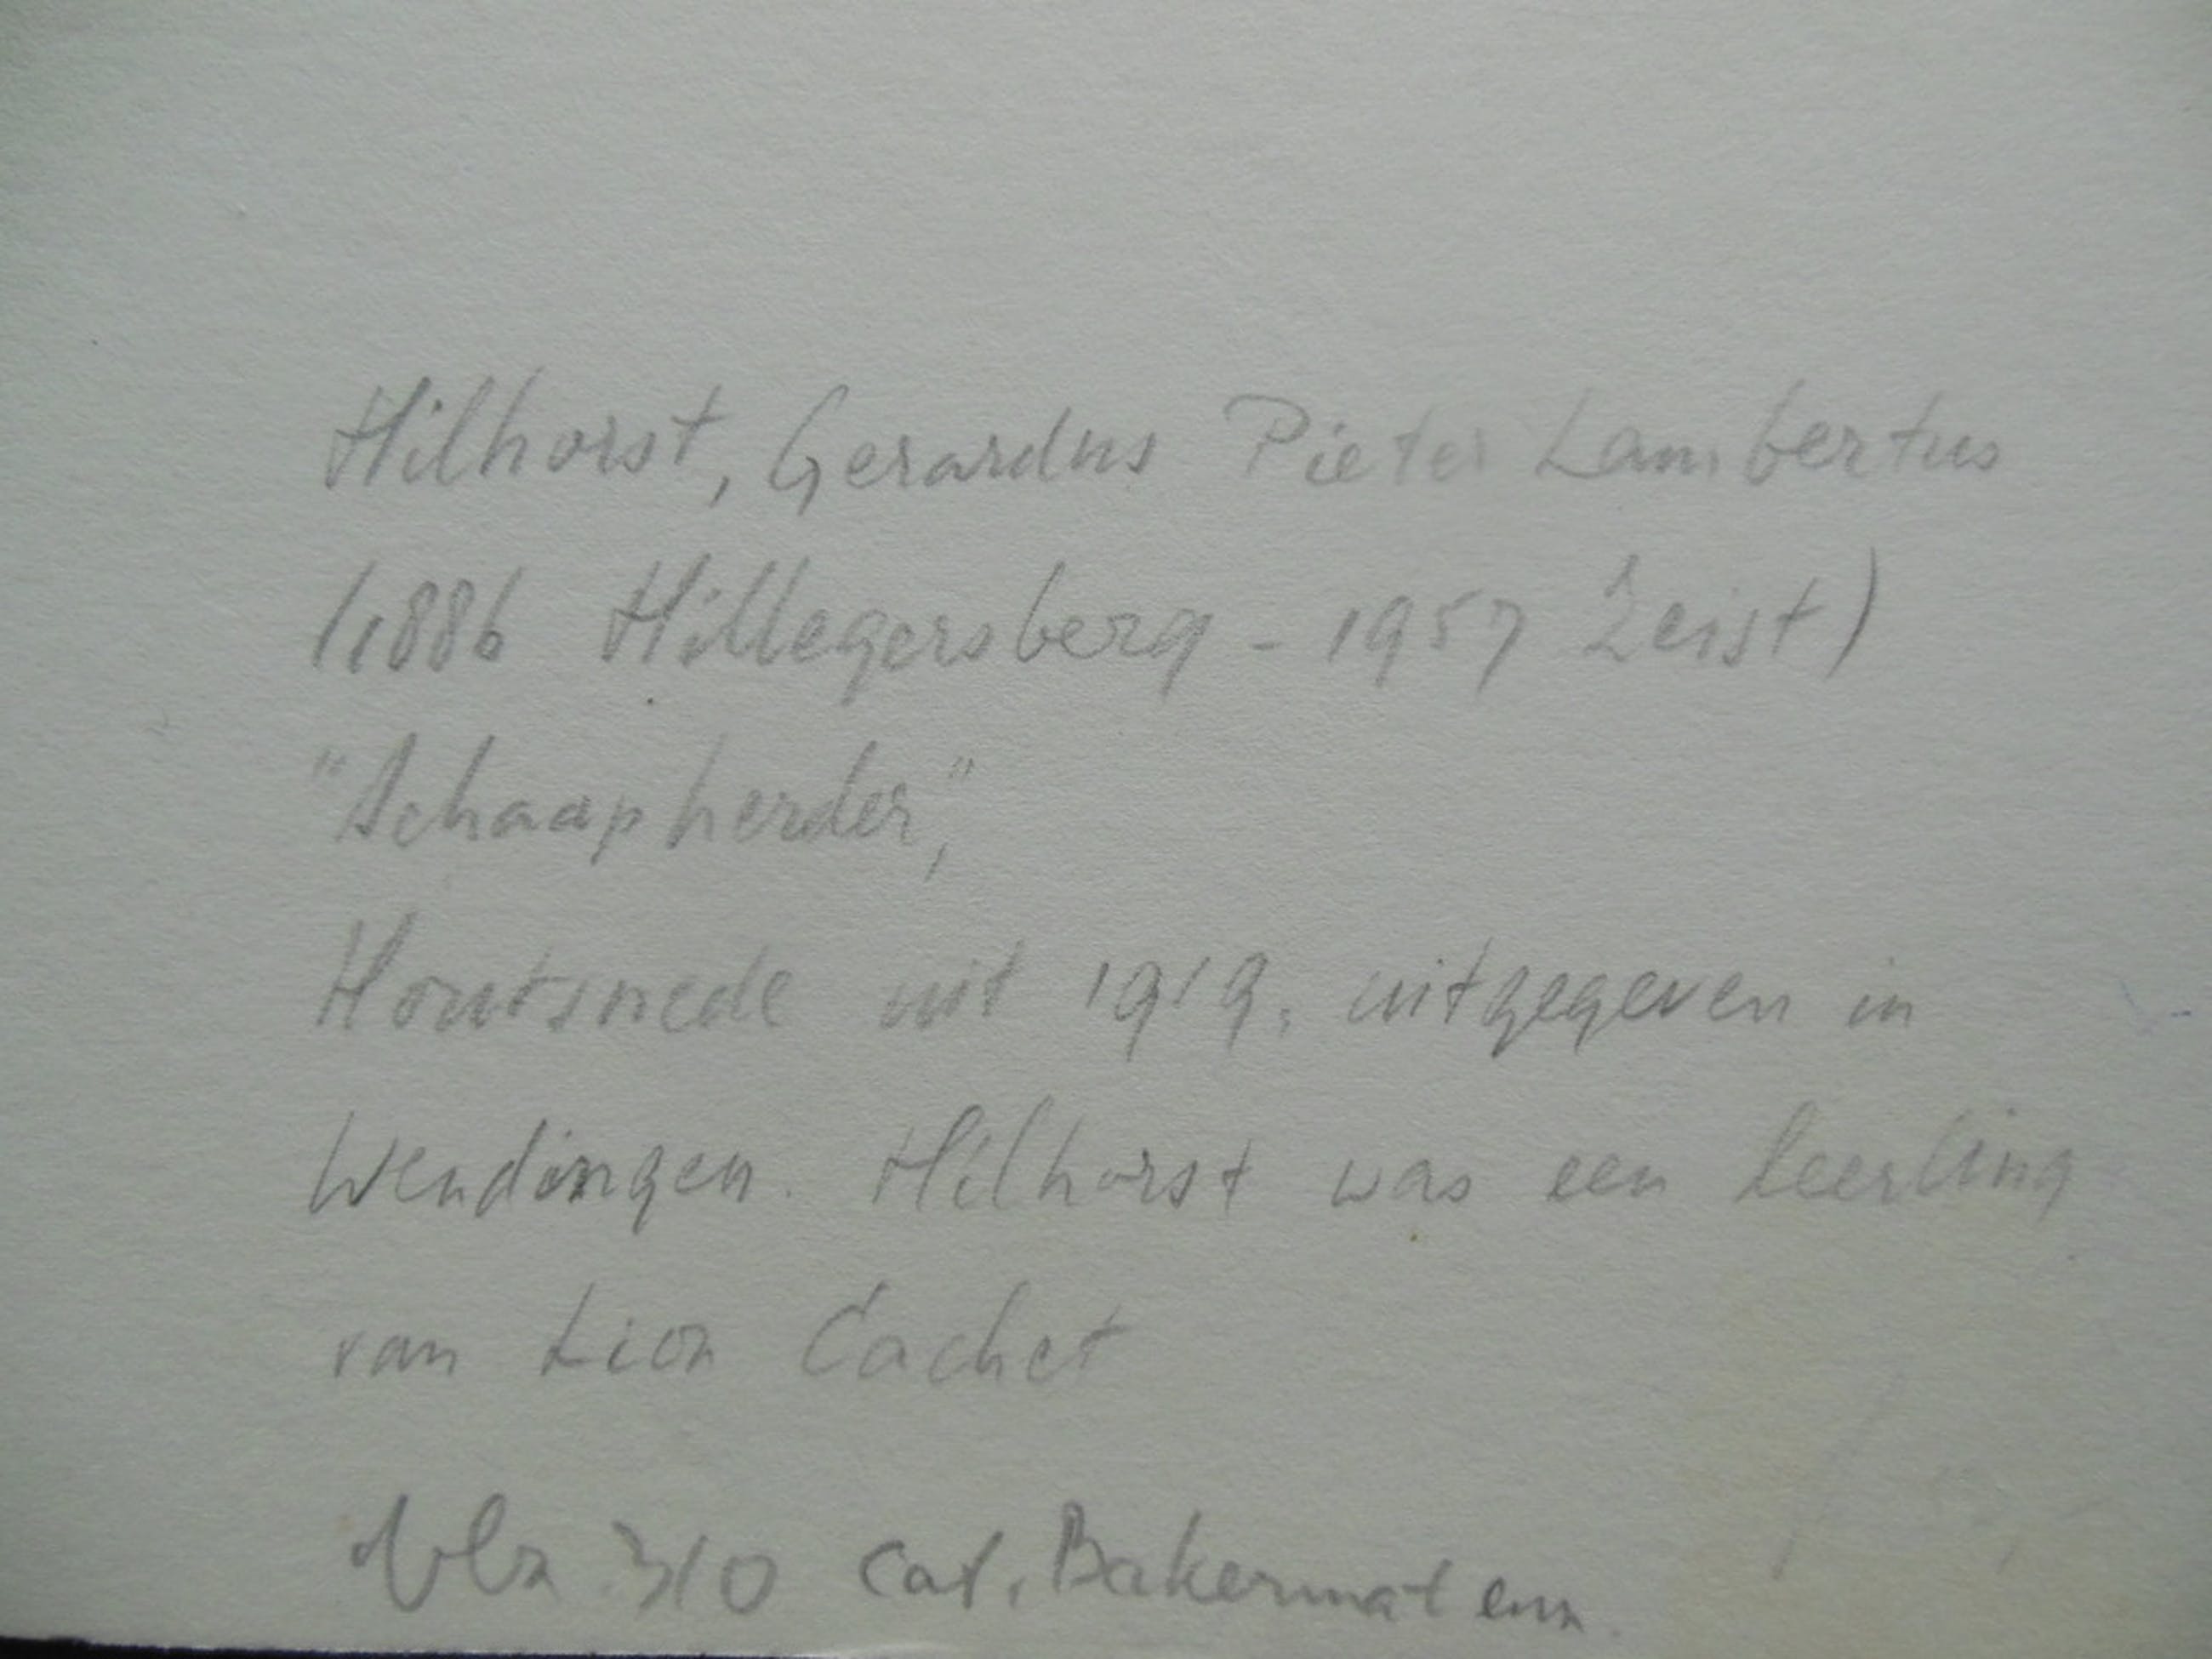 Hilhorst, Gerardus Pieter Lambertus
(1886 Hillegersberg - 1957 Zeist)
"Schaapherder,"
Houtsnede uit 1919, uitgegeven in
Wendingen. Hilhorst was een leerling
van Lion Cachet
310 cat. Bakermat